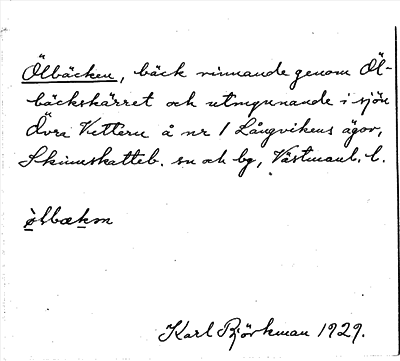 Ölbäcken, bäck rinnande genom Öl-
bäckskärret och utmynnande i sjön
Övre Vettern å nr 1 Långvikens ägor,
Skinnskatteb. sn och bg, Västmanl. l.
ø̀lbækən
Karl Björkman 1929.